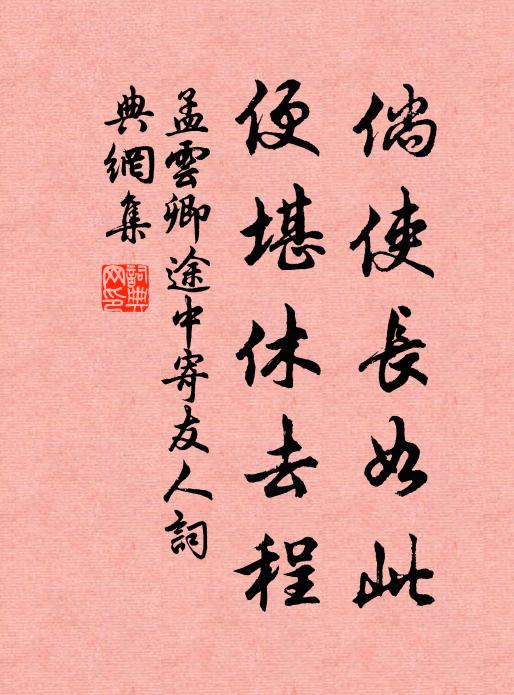 倘使長如此
便堪休去程
孟雲卿途中寄友人詞
典網集
詞典網印